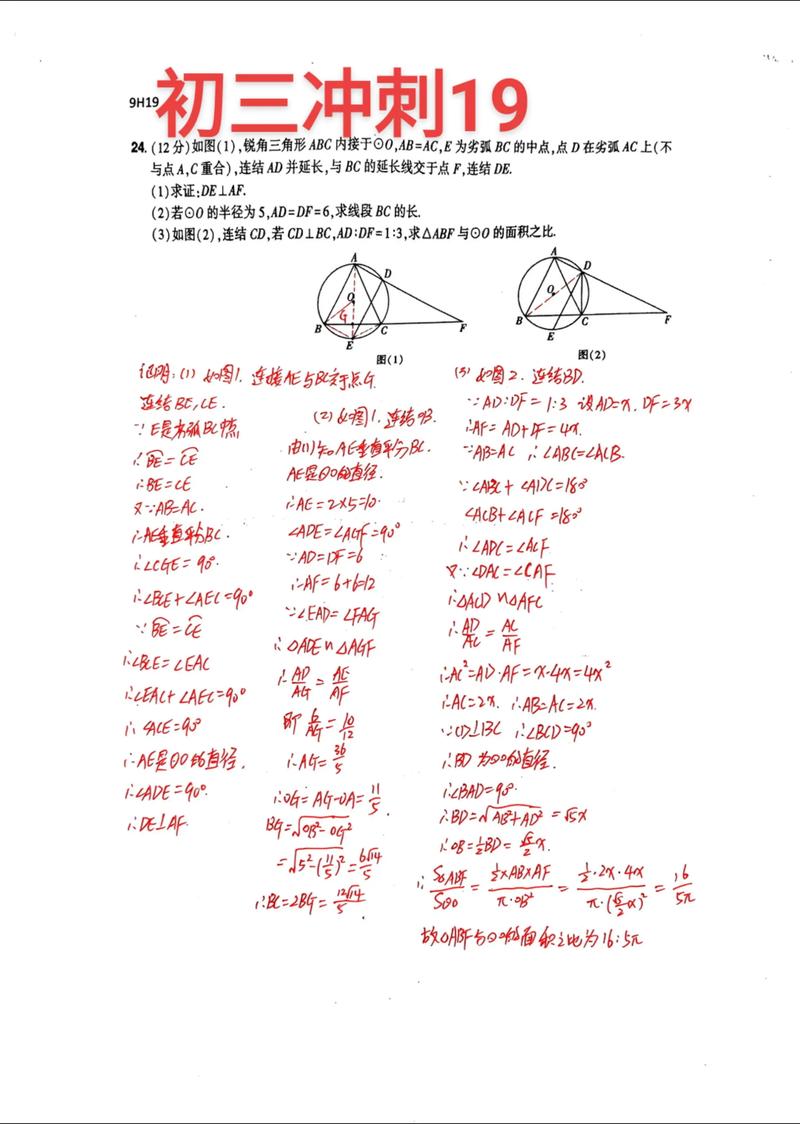 9H19 初三冲刺19
24.(12分)如图(1),锐角三角形ABC内接于⊙O,AB=AC,E为劣弧BC的中点,点D在劣弧AC上(不
与点A,C重合),连结AD并延长,与BC的延长线交于点F,连结DE.
(1)求证:DE⊥AF.
(2)若⊙O的半径为5,AD=DF=6,求线段BC的长.
(3)如图(2),连结CD,若CD⊥BC,AD:DF=1:3,求△ABF与⊙O的面积之比.
A
D
O
G
B
C
F
E
图(1)
A
D
O
B
C
F
E
图(2)
证明:(1)如图1.连接AE与BC交于点G.
连结BE,CE.
∵E是劣弧BC中点
∴BE=CE
∴BE=CE
又∵AB=AC.
∴AE垂直平分BC.
∴∠CGE=90°.
∴∠BCE+∠AEC=90°
∵BE=CE
∴∠BCE=∠EAC
∴∠EAC+∠AEC=90°
∴∠ACE=90°
∴AE是⊙O的直径.
∴∠ADE=90°.
∴DE⊥AF.
(2)如图1.连结OB.
由(1)知AE垂直平分BC.
AE是⊙O的直径.
∴AE=2×5=10.
∠ADE=∠AGF=90°
∵AD=DF=6
∴AF=6+6=12
∵∠EAD=∠FAG
∴△ADE∽△AGF
∴AD/AG=AE/AF
即6/AG=10/12
∴AG=36/5
∴OG=AG-OA=11/5.
BG=√(OB²-OG²)
=√(5²-(11/5)²)=6√14/5
∴BC=2BG=12√14/5.
(3)如图2.连结BD.
∵AD:DF=1:3 设AD=x.DF=3x
∴AF=AD+DF=4x.
∵AB=AC ∴∠ABC=∠ACB.
∵∠ABC+∠ADC=180°
∠ACB+∠ACF=180°
∴∠ADC=∠ACF
又∵∠DAC=∠CAF
∴△ACD∽△AFC
∴AD/AC=AC/AF
∴AC²=AD·AF=x·4x=4x²
∴AC=2x.∴AB=AC=2x.
∵CD⊥BC ∴∠BCD=90°
∴BD为⊙O的直径.
∴∠BAD=90°.
∴BD=√(AB²+AD²)=√5x
∴OB=1/2BD=√5/2x.
∴S△ABF/S⊙O=(1/2×AB×AF)/(π·OB²)=(1/2·2x·4x)/(π·(√5/2x)²)=16/5π
故△ABF与⊙O的面积之比为16:5π